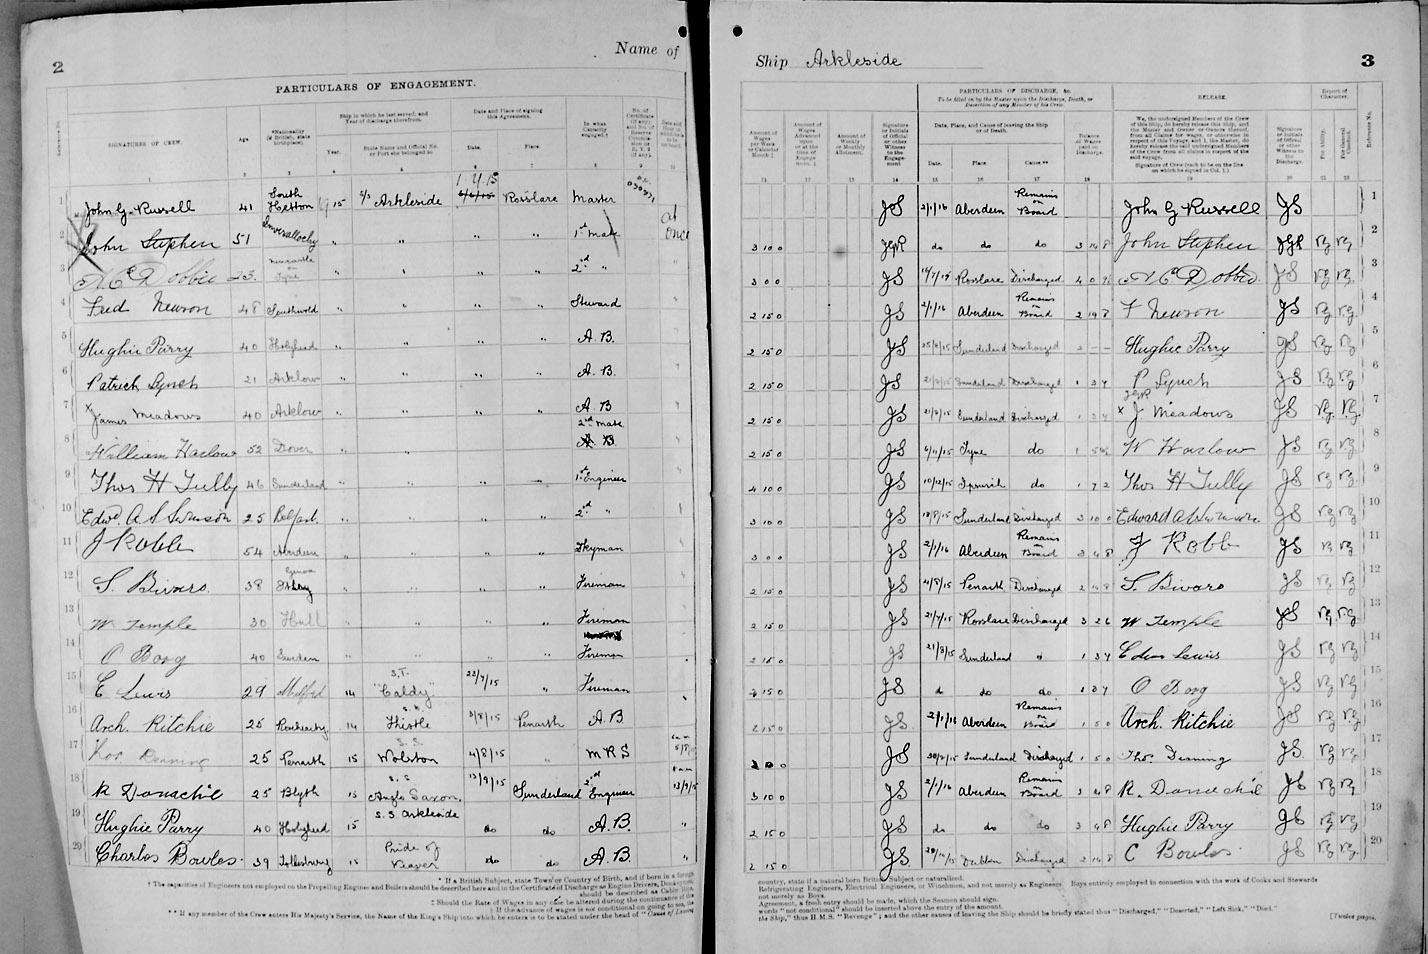 2
Name of
PARTICULARS OF ENGAGEMENT.
SIGNATURES OF CREW.
Age
Nationality (if British, state birthplace).
Ship in which he last served, and Year of discharge therefrom.
Year.
State Name and Official No. or Port she belonged to
Date and Place of signing this Agreement.
Date.
Place.
In what Capacity engaged
1 John G. Russell 41 South Hetton 1915 S/S Arkleside 1.4.15 Rosslare Master
2 John Stephen 51 Inverallochy " " " " 1st Mate at once
3 23 Newcastle on Tyne " " " " 2nd "
4 Fred Newson 48 Southwold " " " " Steward
5 Hughie Parry 40 Holyhead " " " " A.B.
6 Patrick Lynch 21 Arklow " " " " A.B.
7 x James Meadows 40 Arklow " " " " A.B
8 William Harlow 52 Dover " " 2nd Mate A.B.
9 Thos H Tully 46 Sunderland " " " " 1st Engineer
10 Edwd. A. S. Swinson 25 Belfast " " " " 2nd "
11 J Robb 54 Aberdeen " " " " Dkyman
12 S. Bivaro 38 Genoa Italy " " " " Fireman
13 W Temple 30 Hull " " " " Fireman
14 O Boog 40 Sweden " " " " Fireman
15 E Lewis 29 Milford 14 S.T. "Caldy" 22/7/15 " Fireman
16 Arch. Ritchie 25 14 Thistle 3/8/15 Penarth A.B
17 25 Penarth 15 S.S. Wolston 4/8/15 " M R S
18 R Donachie 25 Blyth 15 S.S Anglo Saxon 13/9/15 Sunderland 2nd Engineer 13/9/15
19 Hughie Parry 40 Holyhead 15 S.S. Arkleside do do A.B. "
20 Charles Bowles 39 Tollesbury 15 Pride of do do A.B. "
* If a British Subject, state Town or Country of Birth, and if born in a foreign
† The capacities of Engineers not employed on the Propelling Engine and Boilers should be described here and in the Certificate of Discharge as Engine Drivers,
‡ Should the Rate of Wages in any case be altered during the continuance of
|| If the advance of wages is not conditional on going to sea, the
** If any member of the Crew enters His Majesty's Service, the Name of the King's Ship into which he enters is to be stated under the head of "Causes of Leaving
Ship Arkleside
3
PARTICULARS OF DISCHARGE, &c.
To be filled in by the Master upon the Discharge, Death, or Desertion of any Member of his Crew.
Date, Place, and Cause of leaving the Ship or of Death.
Date.
Place.
Cause.**
Balance of Wages paid on Discharge.
RELEASE.
We, the undersigned Members of the Crew of this Ship, do hereby release this Ship, and the Master and Owner or Owners thereof, from all Claims for wages, or otherwise in respect of this voyage, and I, the Master, do hereby release the undersigned Members of the Crew from all claims in respect of the said voyage.
Signature of Crew (each to be on the line on which he signed in Col. 1.)
Report of Character.
For Ability.
For General Conduct.
Reference No.
JS 2/1/16 Aberdeen Remains on Board John G Russell JS 1
3 10 0 JGR do do do 3 14 8 John Stephen JGR VG VG 2
3 0 0 JS Rosslare Discharged JS VG VG 3
2 15 0 JS 2/1/16 Aberdeen Remains on Board 2 19 8 F Newson JS VG VG 4
2 15 0 JS Sunderland Discharged Hughie Parry JS VG VG 5
2 15 0 JS Sunderland Discharged 1 3 4 P Lynch JS VG VG 6
2 15 0 JS 21/8/15 Sunderland Discharged 1 3 4 x J. Meadows JGR JS VG VG 7
2 15 0 JS 6/11/15 Tyne do W Harlow JS VG VG 8
4 10 0 JS 10/12/15 Ipswich do 1 7 2 Thos H Tully JS VG VG 9
3 10 0 JS Sunderland Discharged 3 10 0 JS VG VG 10
3 0 0 JS 2/1/16 Aberdeen Remains on Board 3 4 8 J Robb JS VG VG 11
2 15 0 JS 4/8/15 Penarth Discharged 2 4 8 S. Bivaro JS VG VG 12
2 15 0 JS 21/7/15 Rosslare Discharged 3 2 6 W Temple JS VG VG 13
2 15 0 JS 21/8/15 Sunderland " 1 3 4 Edwin Lewis JS VG VG 14
2 15 0 JS do do do 1 3 4 O Boog JS VG VG 15
2 15 0 JS 2/1/16 Aberdeen Remains on Board 1 5 0 Arch. Ritchie JS VG VG 16
JS Sunderland Discharged 1 5 0 JS VG VG 17
3 10 0 JS 2/1/16 Aberdeen Remains on Board 3 4 8 R. Donachie JS VG VG 18
2 15 0 JS do do do 3 4 8 Hughie Parry JS VG VG 19
2 15 0 JS Dublin Discharged 2 4 8 C Bowles JS VG VG 20
country, state if a natural born British Subject or naturalized.
Refrigerating Engineers, Electrical Engineers, or Winchmen, and not merely as Engineers. Boys entirely employed in connection with the work of Cooks and Stewards
not merely as Boys.
Agreement, a fresh entry should be made, which the Seamen should sign.
words "not conditional" should be inserted above the entry of the amount.
the Ship," thus H.M.S. "Revenge"; and the other causes of leaving the Ship should be briefly stated thus "Discharged," "Deserted," "Left Sick," "Died."
[Twelve pages.